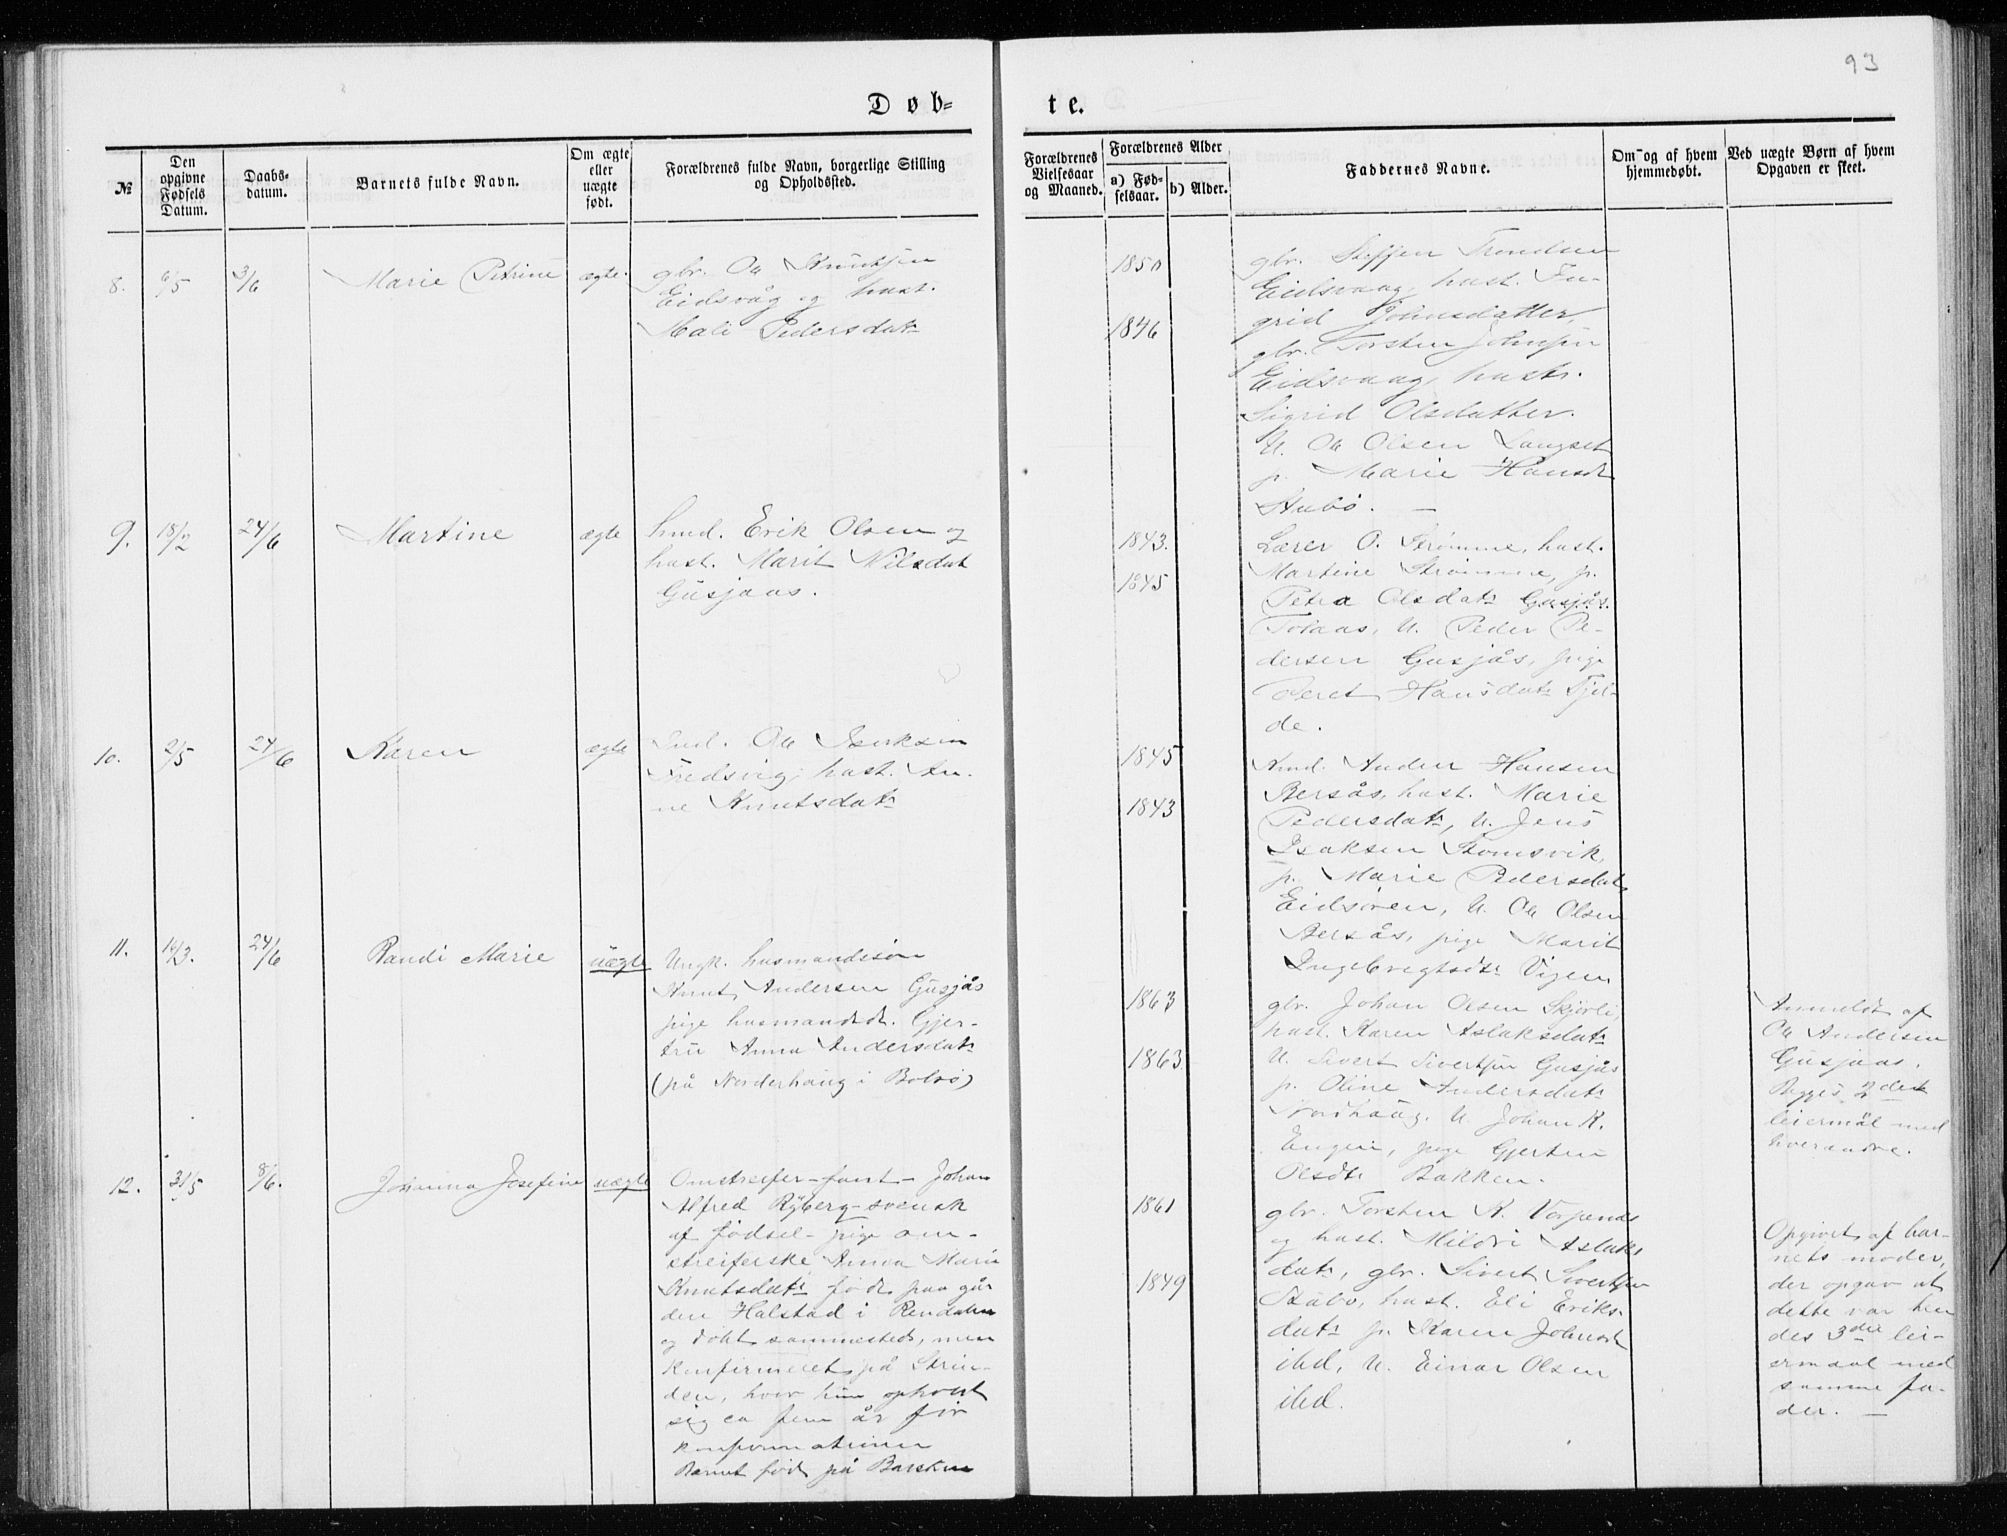 93
Døb=
te.
№
Den opgivne Fødsels Datum.
Daabs-datum.
Barnets fulde Navn.
Om ægte eller uægte født.
Forældrenes fulde Navn, borgerlige Stilling og Opholdssted.
Forældrenes Vielsesaar og Maaned.
Forældrenes Alder
a) Fødselsaar.
b) Alder.
Faddernes Navne.
Om og af hvem hjemmedøbt.
Ved uægte Børn af hvem Opgaven er skeet.
8.
6/5
3/6
Marie Petrine
ægte.
gbr. Ole Knutsen
Eidsvåg og hust.
Mali Pedersdatr
1850
1846
gbr. Steffen Trondsen
Eidsvaag, hust. In-
grid Johnsdatter
gbr. Torsten Johnsen
Eidsvaag, hustr.
Sigrid Olsdatter.
U. Ole Olsen Langset
p. Marie Hansdt
Stubø. —
9.
18/2
24/6
Martine
ægte
husd. Erik Olsen og
hust. Marit Nilsdat
Gusjaas.
1843.
1845
Lærer O. Strømme, hust.
Martine Strømme, p.
Petra Olsdatr Gusjås.
Tolaas, U. Peder Pe-
dersen Gusjås, pige
Beret Hansdatr Fjer-
de.
10.
2/5
24/6
Karen
ægte
Ind. Ole
Fredsvig, hust. An-
ne Knutsdatr
1845
1843
hmd. Anders Hansen
Bersås, hust. Marie
Pedersdatr, U. Jens
Isaksen Stomsvik,
p. Marie Pedersdatr
Eidsøren, U. Ole Olsen
Bersås, pige Marit
Ingebregtsdtr Vigen
11.
14/3.
24/6
Randi Marie
uægte
Ungk. husmandssøn
Knut Andersen Gusjås
pige husmandsdt. Gjer-
tru Anna Andersdatr
(på Norderhaug i Bolsø)
1863
1863
gbr. Johan Olsen Skjørli,
hust. Karen Aslaksdatr
U. Sivert Sivertsen Gusjås
p. Oline Andersdatr
Nordhaug. U. Johan K.
Engen, pige Gjertru
Olsdtr Bakken.
Anmeldt af
Ole Andersen
Gusjaas.
Begges 2det
leiermål med
hverandre.
12.
31/5
8/6.
Johanna Josefine
uægte
Omstreifer-fant- Johan
Alfred Ryberg-svensk
af fødsel- pige om-
streiferske Anna Marie
Knutsdatr født paa går
den Halstad i Rendalen
og døbt sammesteds, men
konfirmeret på Strin-
den, hvor hun opholdt
sig ca fem år før
konfirmationen
Barnet født på Barsken
1861
1849
gbr. Torsten K.
og hust. Mildri Aslaks
datr, gbr. Sivert Sivertsen
Stubø, hust. Eli Eriks-
datr p. Karen Johnsdt
ibd, U. Einar Olsen
ibd.
Opgivet af bar-
nets moder,
der opgav at
dette var hen
des 3die lei-
ermaal med
samme fa-
der. —